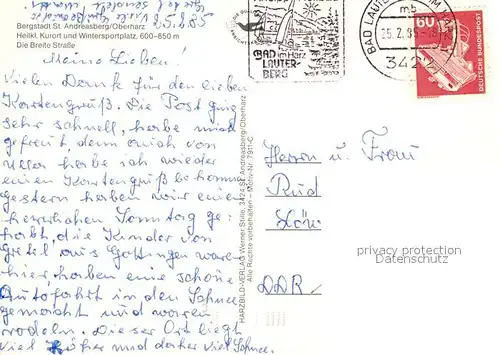 Bergstadt St. Andreasberg/Oberharz
Heilkl. Kurort und Wintersportplatz, 600–850 m
Die Breite Straße
Meine Lieben!
Vielen Dank für den lieben
Kartengruß. Die Post ging
sehr schnell, habe mich
gefreut, denn auch von
habe ich wieder
einen Kartengruß bekommen
gestern haben wir einen
herrlichen Sonntag ge-
habt, die Kinder von
Gretel aus Göttingen waren
hier, haben eine schöne
Autofahrt in den Schnee
gemacht und waren
rodeln. Dieser Ort liegt
viel höher und daher viel Schnee.
HARZBILD-VERLAG Werner Stille, 3424 St. Andreasberg/Oberharz
Alle Rechte vorbehalten – Motiv-Nr. 7911-C
BAD im Harz
LAUTER-
BERG
BAD LAUTERBERG IM HARZ
mb
25.2.85
3422
60
DEUTSCHE BUNDESPOST
Herrn u. Frau
Rud
DDR
privacy protection
Datenschutz